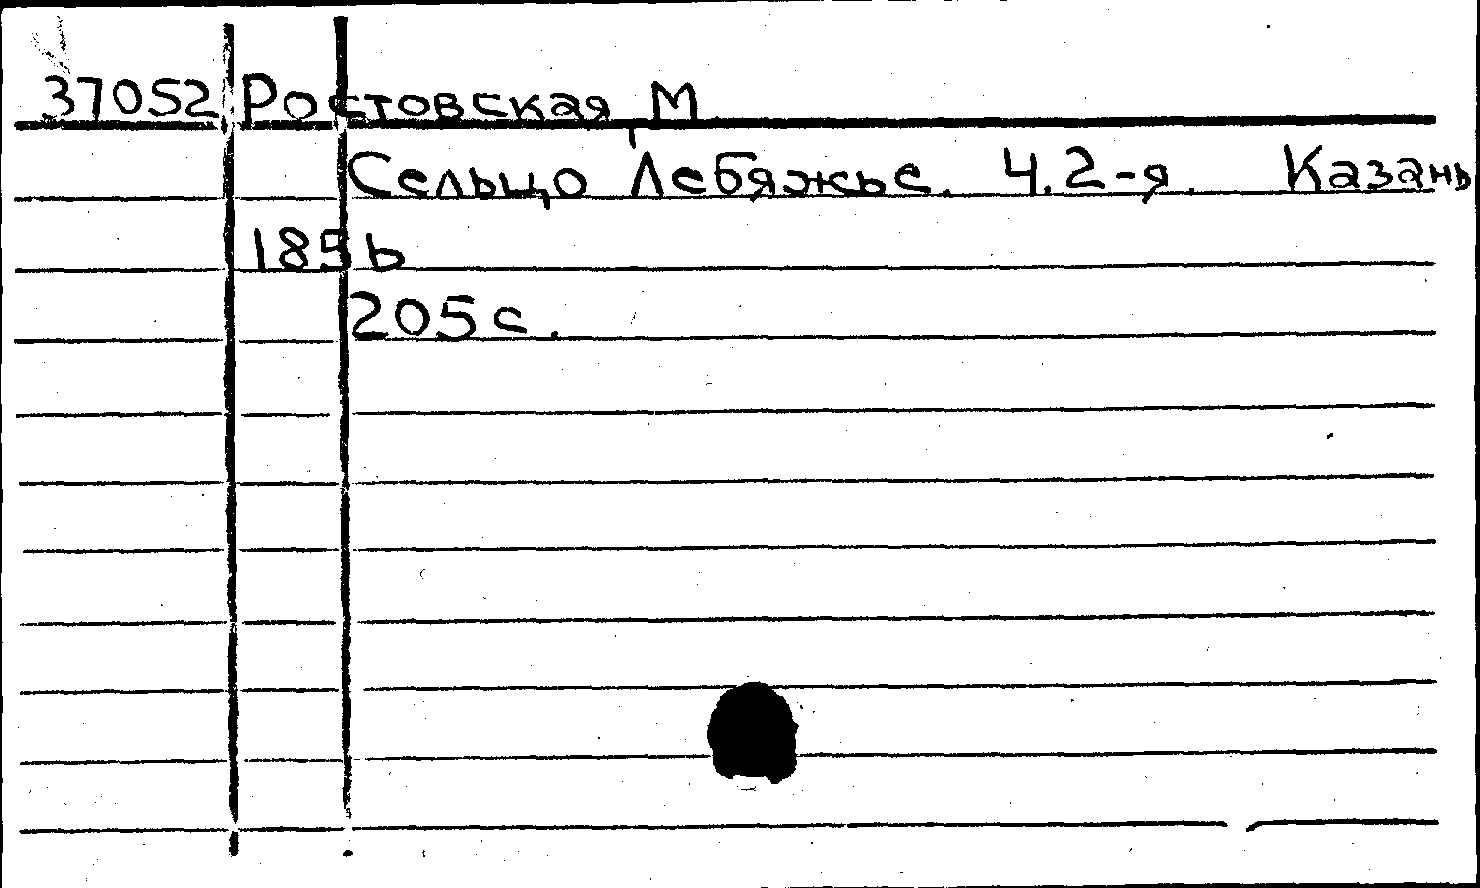 37052 Ростовская, М
Сельцо Лебяжье. Ч.2-я. Казань
1856
205 с.